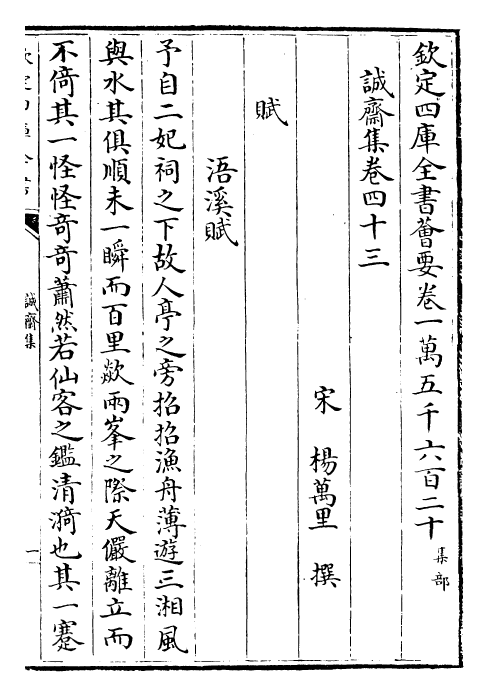 欽定四庫全書薈要卷一萬五千六百二十 集部
誠齋集卷四十三
宋 楊萬里 撰
賦
浯溪賦
予自二妃祠之下故人亭之旁招招漁舟薄遊三湘風
與水其俱順未一瞬而百里歘兩峯之際天儼離立而
不倚其一怪怪竒竒蕭然若仙客之鑑清漪也其一蹇
誠齋集
一